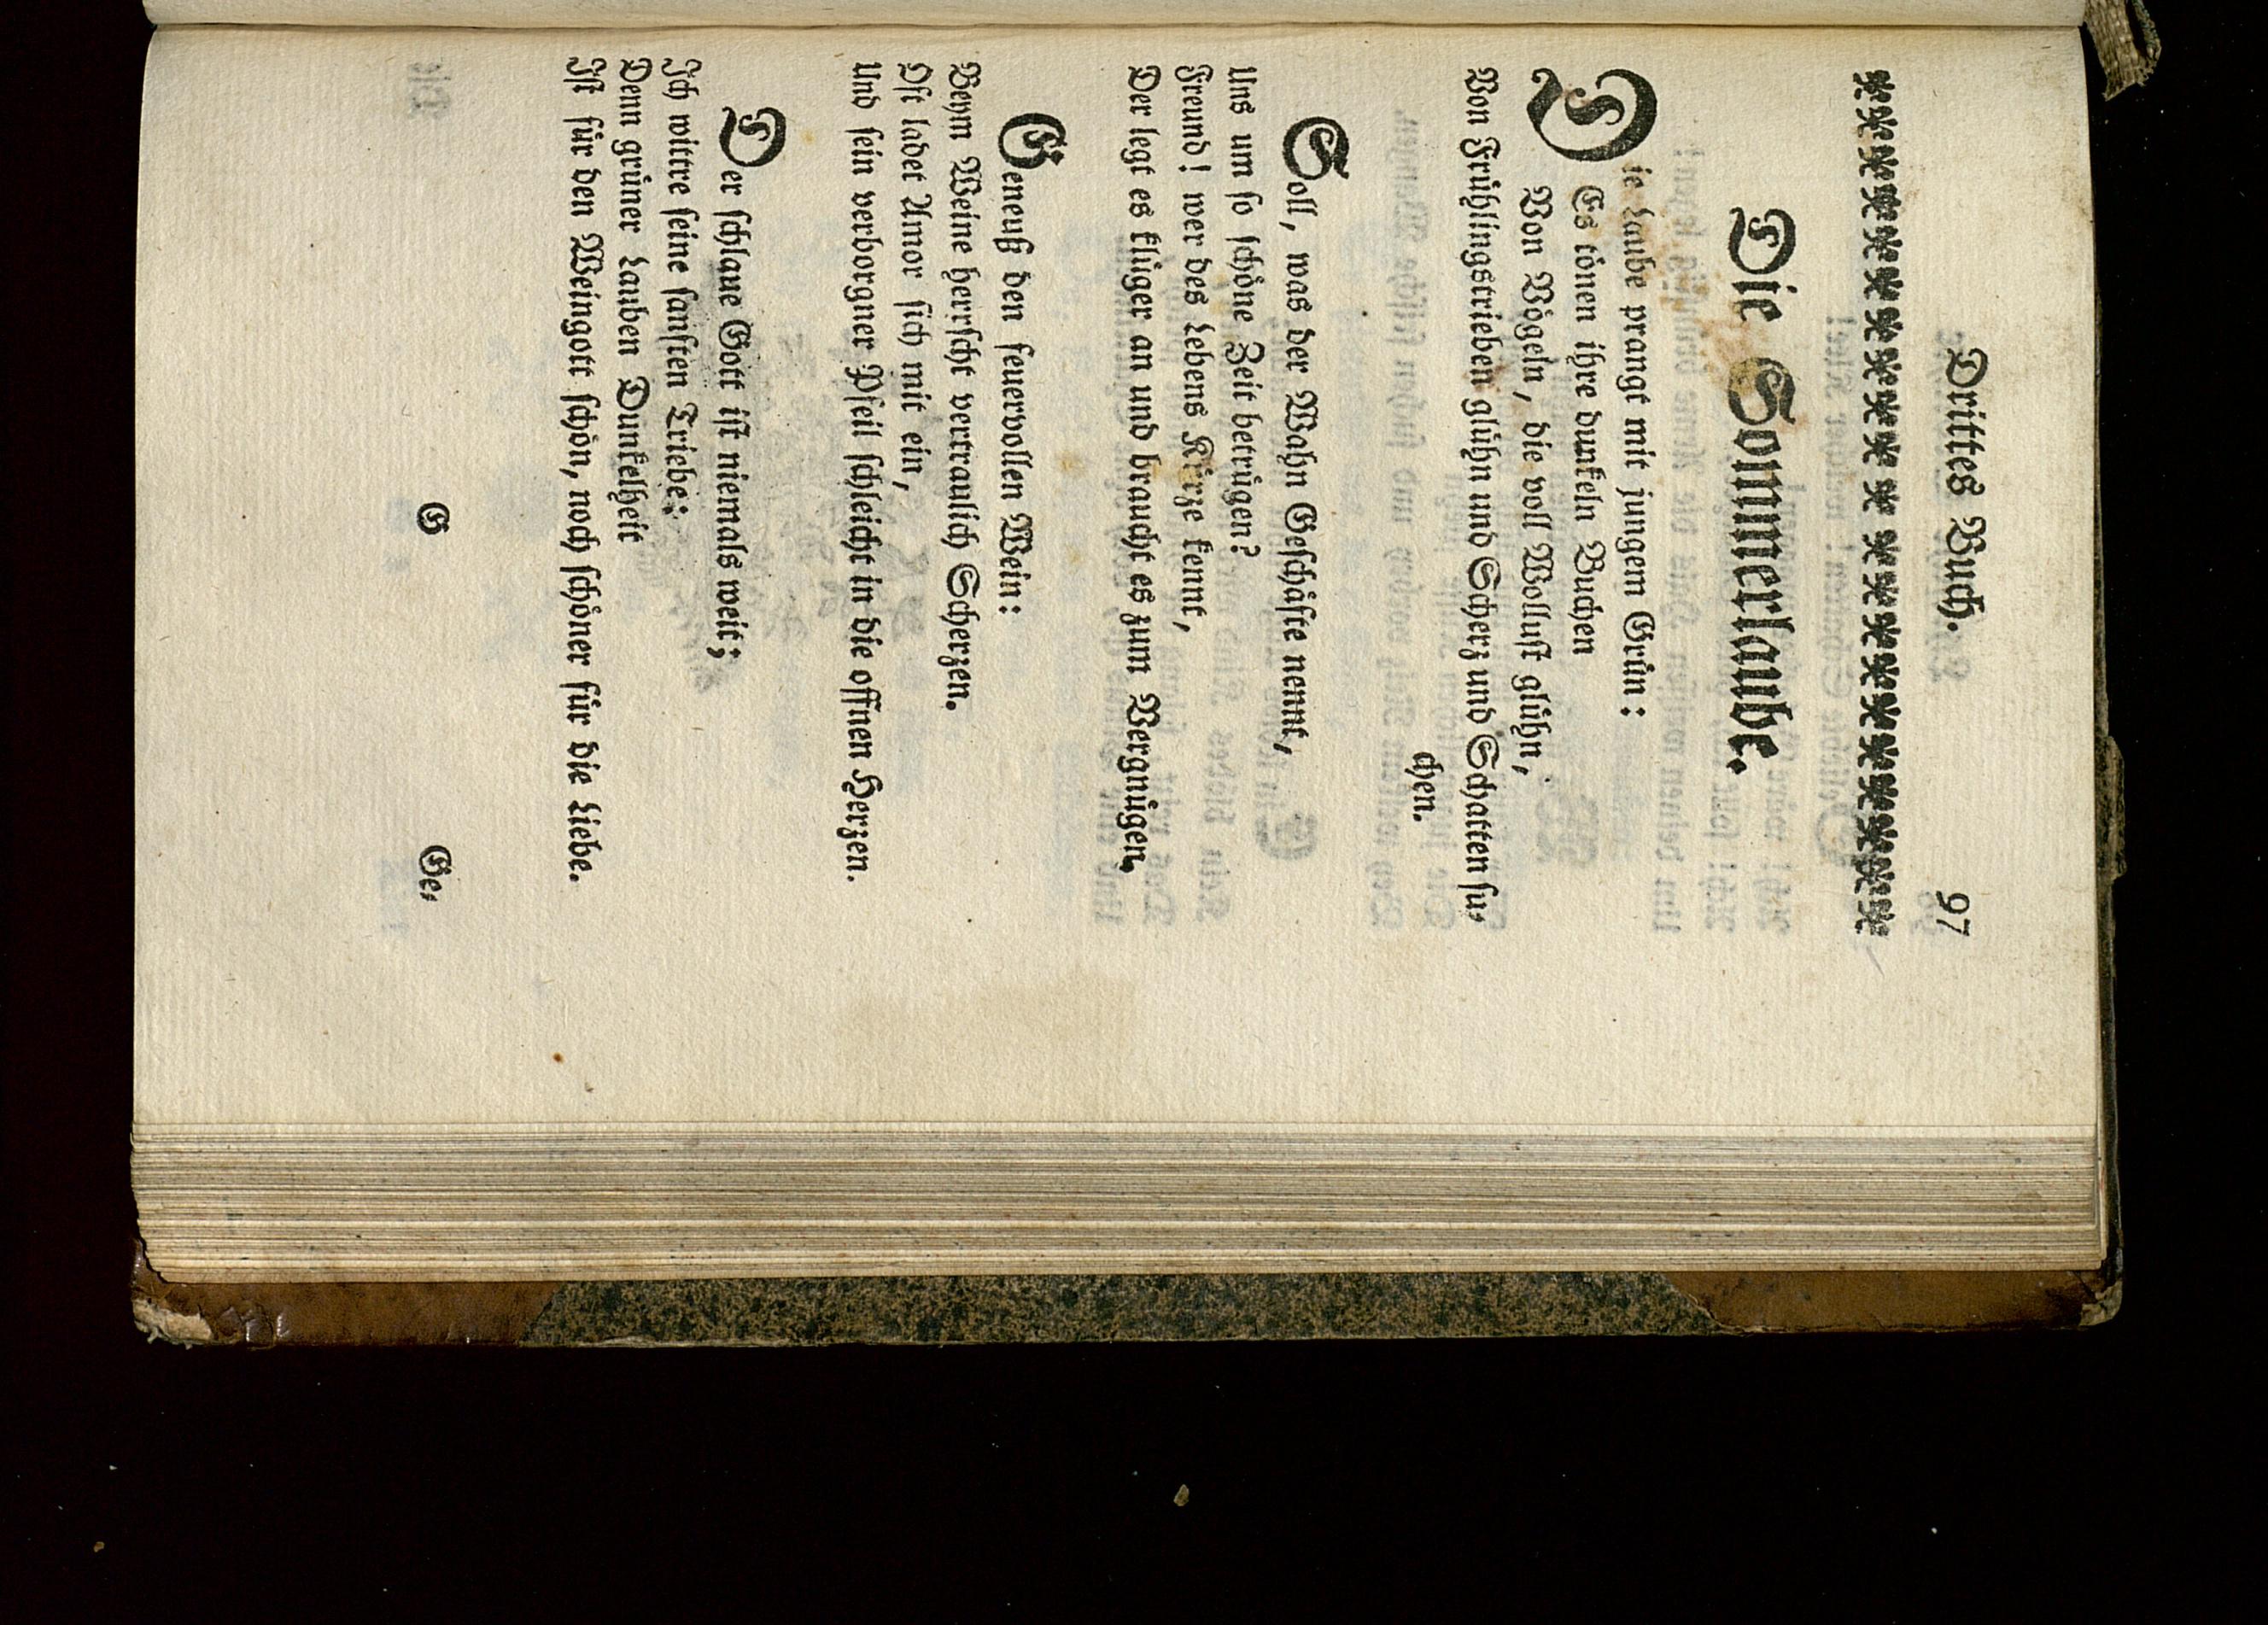 Drittes Buch. 97
Die Sommerlaube.
Die Laube prangt mit jungem Grün:
Es tönen ihre dunkeln Buchen
Von Vögeln, die voll Wollust glühn,
Von Frühlingstrieben glühn und Scherz und Schatten su-
chen.
Soll, was der Wahn Geschäfte nennt,
Uns um so schöne Zeit betrügen?
Freund! wer des Lebens Kürze kennt,
Der legt es klüger an und braucht es zum Vergnügen.
Geneuß den feuervollen Wein:
Beym Weine herrscht vertraulich Scherzen.
Oft ladet Amor sich mit ein,
Und sein verborgner Pfeil schleicht in die offnen Herzen.
Der schlaue Gott ist niemals weit;
Ich wittre seine sanften Triebe:
Denn grüner Lauben Dunkelheit
Ist für den Weingott schön, noch schöner für die Liebe.
G Ge-